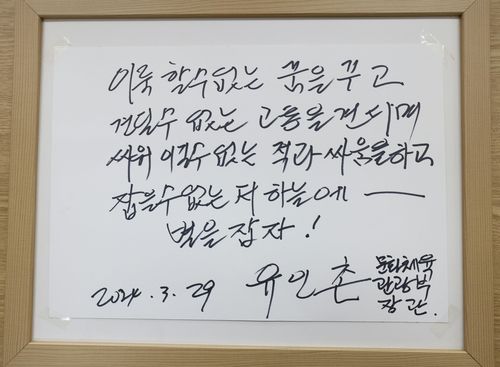 이룩 할수 없는 꿈을 꾸고
견딜수 없는 고통을 견디며
싸워 이길수 없는 적과 싸움을 하고
잡을수 없는 저 하늘에 —
별을 잡자 !
2024. 3. 29 유인촌 문화체육
관광부
장관.